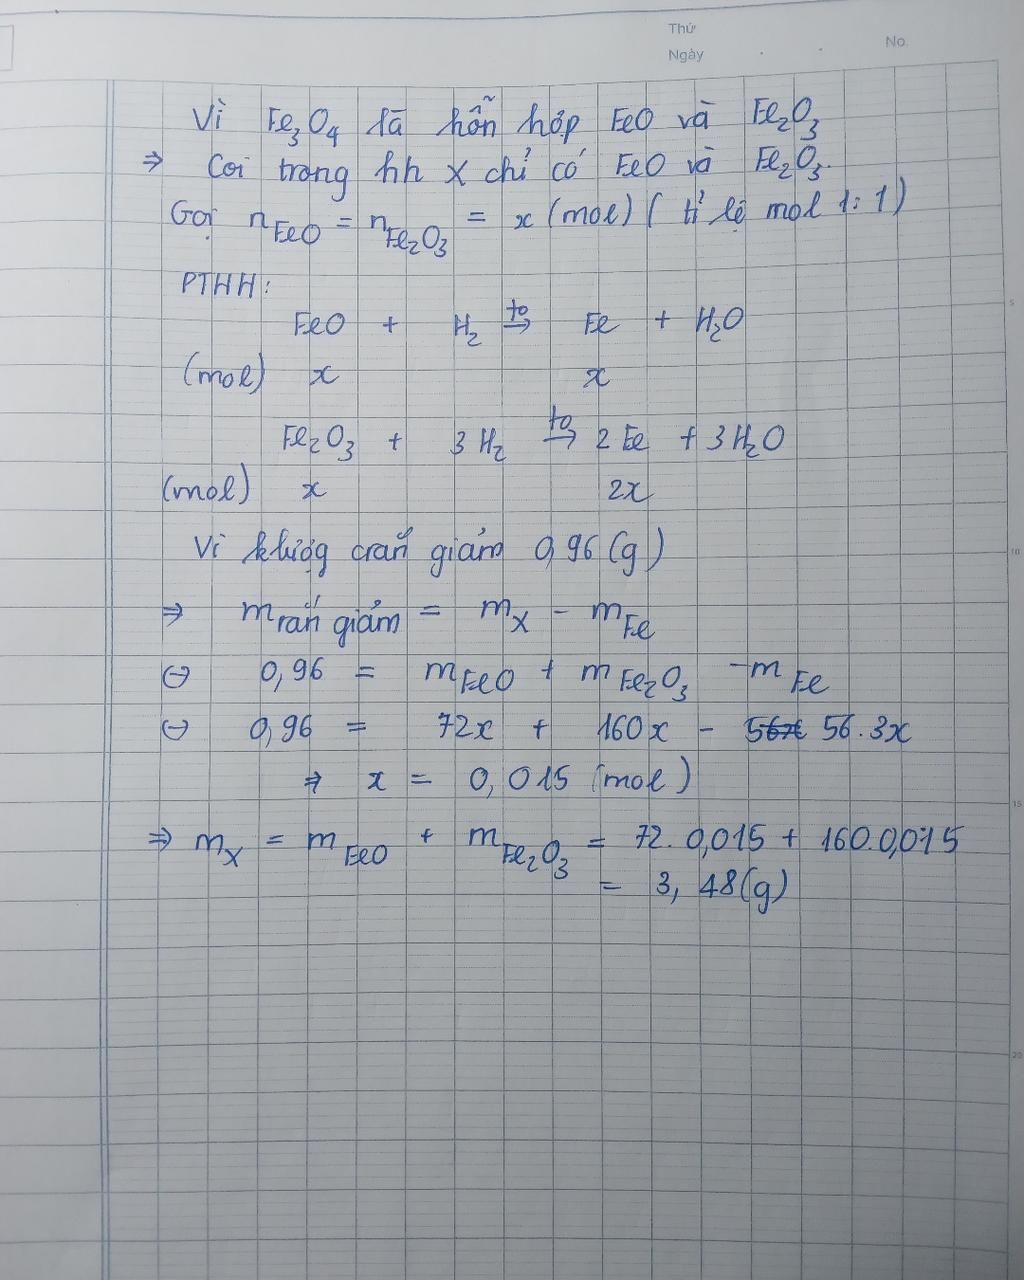 Thứ
Ngày . . No.
Vì Fe₃O₄ là hỗn hợp FeO và Fe₂O₃
⇒ Coi trong hh X chỉ có FeO và Fe₂O₃.
Gọi nFeO = nFe₂O₃ = x (mol) ( tỉ lệ mol 1:1)
PTHH:
FeO + H₂ →(to) Fe + H₂O
(mol) x x
Fe₂O₃ + 3H₂ →(to) 2Fe + 3H₂O
(mol) x 2x
Vì khượg crắn giảm 0,96(g)
⇒ mrắn giảm = mX - mFe
⇔ 0,96 = mFeO + mFe₂O₃ - mFe
⇔ 0,96 = 72x + 160x - 56.3x
⇒ x = 0,015 (mol)
⇒ mX = mFeO + mFe₂O₃ = 72.0,015 + 160.0,015
= 3,48(g)
5
10
15
20